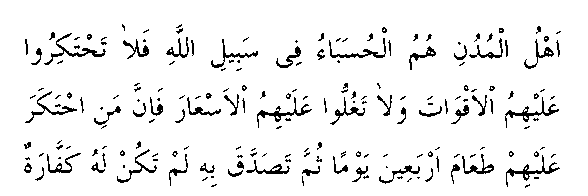 اَهْلُ الْمُدُنِ هُمُ الْحُسَبَاءُ فِى سَبِيلِ اللَّهِ فَلاَ تَحْتَكِرُوا
عَلَيْهِمُ الْاَقْوَاتَ وَلاَ تَغُلُّوا عَلَيْهِمُ الْاَسْعَارَ فَاِنَّ مَنِ احْتَكَرَ
عَلَيْهِمْ طَعَامَ اَرْبَعِينَ يَوْمًا ثُمَّ تَصَدَّقَ بِهِ لَمْ تَكُنْ لَهُ كَفَّارَةٌ